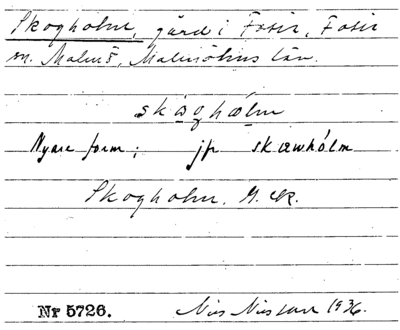 Skogholm, gård i Fosie, Fosie
sn. Malmö, Malmöhus län.
skåghålm
Nyare form; jfr skæwhólm
Skogholm. G. ek.
Nr 5726. Nils Nilsson 1936.